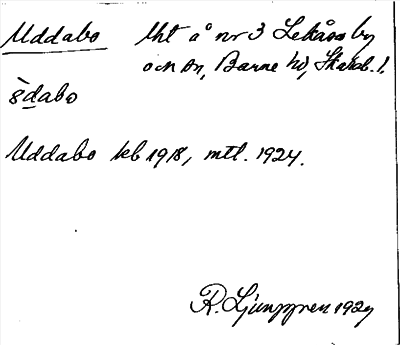 Uddabo lht å nr 3 Lekåsa by
och sn, Barne hd, Skarab. l.
ùdabo
Uddabo kb 1918, mtl. 1924.
R. Ljunggren 1927